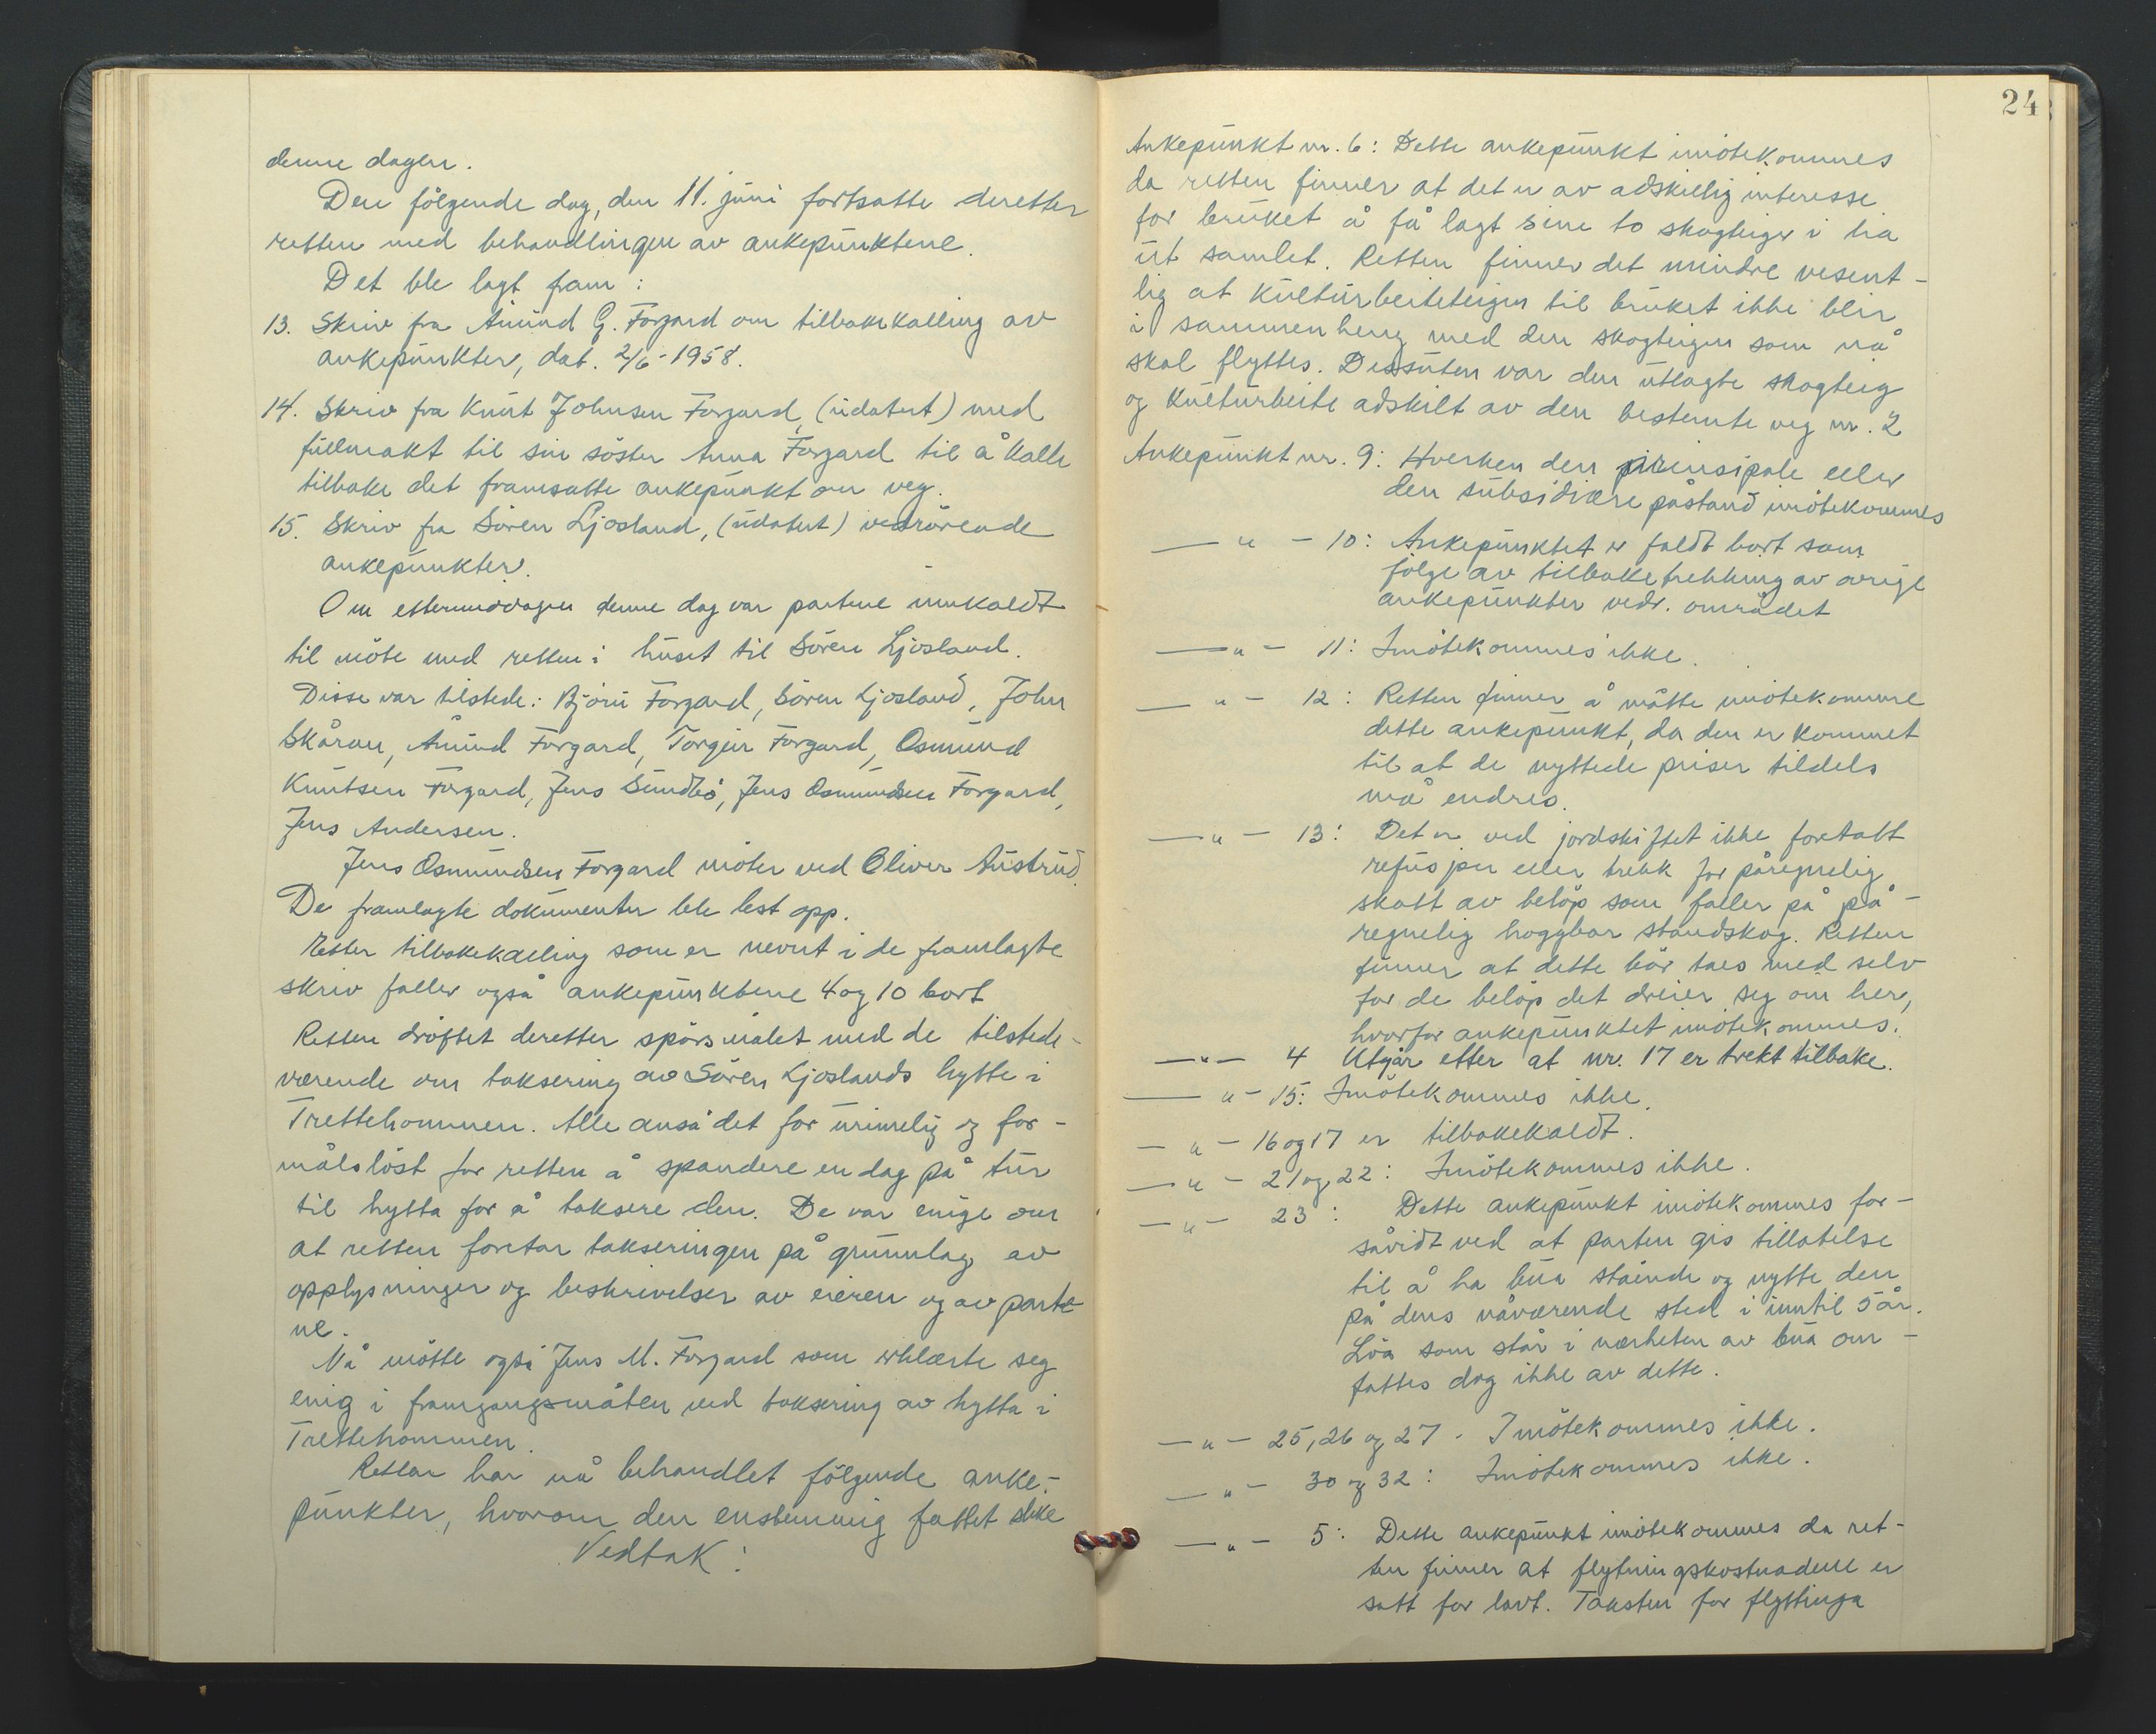 denne dagen.
Den følgende dag, den 11. juni fortsatte deretter
retten med behandlingen av ankepunktene.
Det ble lagt fram:
13. Skriv fra Åmund G. Forgard om tilbakekalling av
ankepunkter, dat. 2/6-1958.
14. Skriv fra Knut Johnsen Forgard, (udatert) med
fullmakt til sin söster Anna Forgard til å kalle
tilbake det framsatte ankepunkt om veg.
15. Skriv fra Sören Ljosland, (udatert) vedrörende
ankepunkter.
Om ettermiddagen denne dag var partene innkaldt
til möte med retten i huset til Sören Ljosland.
Disse var tilstede: Björn Forgard, Sören Ljosland, John
Skåran, Åmund Forgard, Torgeir Forgard, Osmund
Knutsen Forgard, Jens Sundbö, Jens Osmundsen Forgard,
Jens Andersen.
Jens Osmundsen Forgard möter ved Oliver Austrud.
De framlagte dokumenter ble lest opp.
Etter tilbakekalling som er nevnt i de framlagte
skriv faller også ankepunktene 4 og 10 bort
Retten dröftet deretter spörsmålet med de tilstede-
værende om taksering av Sören Ljoslands hytte i
Trettehommen. Alle anså det for urimelig og for-
målslöst for retten å spandere en dag på tur
til hytta for å taksere den. De var enige om
at retten foretar takseringen på grunnlag av
opplysninger og beskrivelser av eieren og av parte
ne.
Nå mötte også Jens M. Forgard som erklærte seg
enig i framgangsmåten ved taksering av hytta i
Trettehommen.
Retten har nå behandlet fölgende anke-
punkter, hvorom den enstemmig fattet slike
Vedtak:
24
Ankepunkt nr. 6: Dette ankepunkt imötekommes
da retten finner at det er av adskillig interesse
for bruket å få lagt sine to skogteiger i lia
ut samlet. Retten finner det mindre vesent-
lig at kulturbeiteteigen til bruket ikke blir
i sammenheng med den skogteigen som nå
skal flyttes. Dessuten var den utlagte skogteig
og kulturbeite adskilt av den bestemte veg nr. 2
Ankepunkt nr. 9: Hverken den prinsipale eller
den subsidiære påstand imötekommes
— " — 10: Ankepunktet er faldt bort som
fölge av tilbaketrekking av övrige
ankepunkter vedr. området
— " — 11: Imötekommes ikke.
— " — 12: Retten finner å måtte imötekomme
dette ankepunkt, da den er kommet
til at de nyttede priser tildels
må endres.
— " — 13: Det er ved jordskiftet ikke foretatt
refusjon eller trekk for påregnelig
skatt av belöp som faller på på-
regnelig hoggbar standskog. Retten
finner at dette bör taes med selv
for de belöp det dreier seg om her,
hvorfor ankepunktet imötekommes.
— " — 4 Utgår etter at nr. 17 er trekt tilbake.
— " — 15: Imötekommes ikke.
— " — 16 og 17 er tilbakekaldt.
— " — 21 og 22: Imötekommes ikke.
— " — 23: Dette ankepunkt imötekommes for-
såvidt ved at parten gis tillatelse
til å ha bua stående og nytte den
på dens nåværende sted i inntil 5 år.
Löa som står i nærheten av bua om-
fattes dog ikke av dette.
— " — 25, 26 og 27. Imötekommes ikke.
— " — 30 og 32: Imötekommes ikke.
— " — 5: Dette ankepunkt imötekommes da ret-
ten finner at flytningskostnadene er
satt for lavt. Taksten for flyttinga